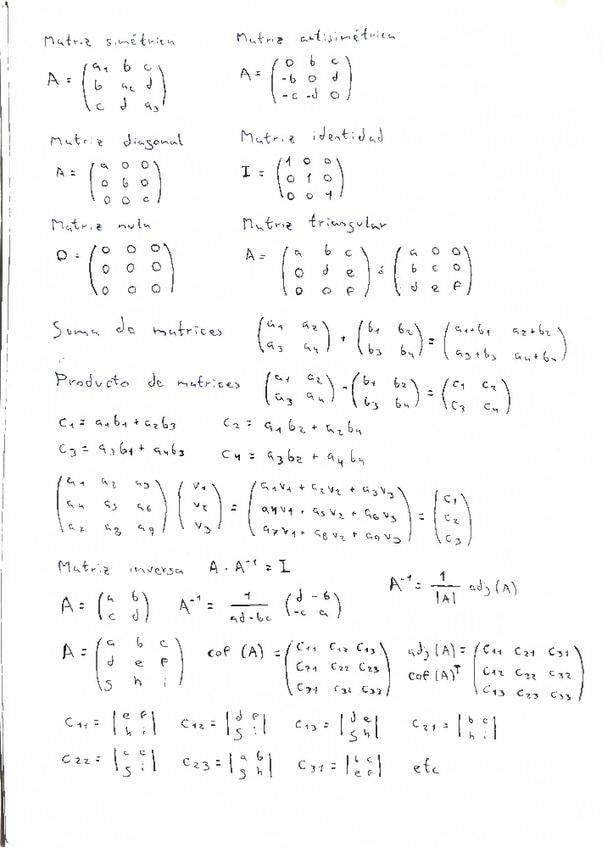 Matriz simétrica Matriz antisimétrica
A = (a₁ b c
b a₂ d
c d a₃)
A = (0 b c
-b 0 d
-c -d 0)
Matriz diagonal Matriz identidad
A = (a 0 0
0 b 0
0 0 c)
I = (1 0 0
0 1 0
0 0 1)
Matriz nula Matriz triangular
O = (0 0 0
0 0 0
0 0 0)
A = (a b c
0 d e
0 0 f) ó (a 0 0
b c 0
d e f)
Suma de matrices (a₁ a₂
a₃ a₄) + (b₁ b₂
b₃ b₄) = (a₁+b₁ a₂+b₂
a₃+b₃ a₄+b₄)
Producto de matrices (a₁ a₂
a₃ a₄) · (b₁ b₂
b₃ b₄) = (c₁ c₂
c₃ c₄)
c₁ = a₁b₁ + a₂b₃ c₂ = a₁b₂ + a₂b₄
c₃ = a₃b₁ + a₄b₃ c₄ = a₃b₂ + a₄b₄
(a₁ a₂ a₃
a₄ a₅ a₆
a₇ a₈ a₉) (v₁
v₂
v₃) = (a₁v₁ + a₂v₂ + a₃v₃
a₄v₁ + a₅v₂ + a₆v₃
a₇v₁ + a₈v₂ + a₉v₃) = (c₁
c₂
c₃)
Matriz inversa A · A⁻¹ = I A⁻¹ = 1/|A| adj(A)
A = (a b
c d) A⁻¹ = 1/ad-bc (d -b
-c a)
A = (a b c
d e f
g h i) cof(A) = (C₁₁ C₁₂ C₁₃
C₂₁ C₂₂ C₂₃
C₃₁ C₃₂ C₃₃) adj(A) =
cof(A)ᵀ (C₁₁ C₂₁ C₃₁
C₁₂ C₂₂ C₃₂
C₁₃ C₂₃ C₃₃)
C₁₁ = |e f
h i| C₁₂ = |d f
g i| C₁₃ = |d e
g h| C₂₁ = |b c
h i|
C₂₂ = |a c
g i| C₂₃ = |a b
g h| C₃₁ = |b c
e f| etc